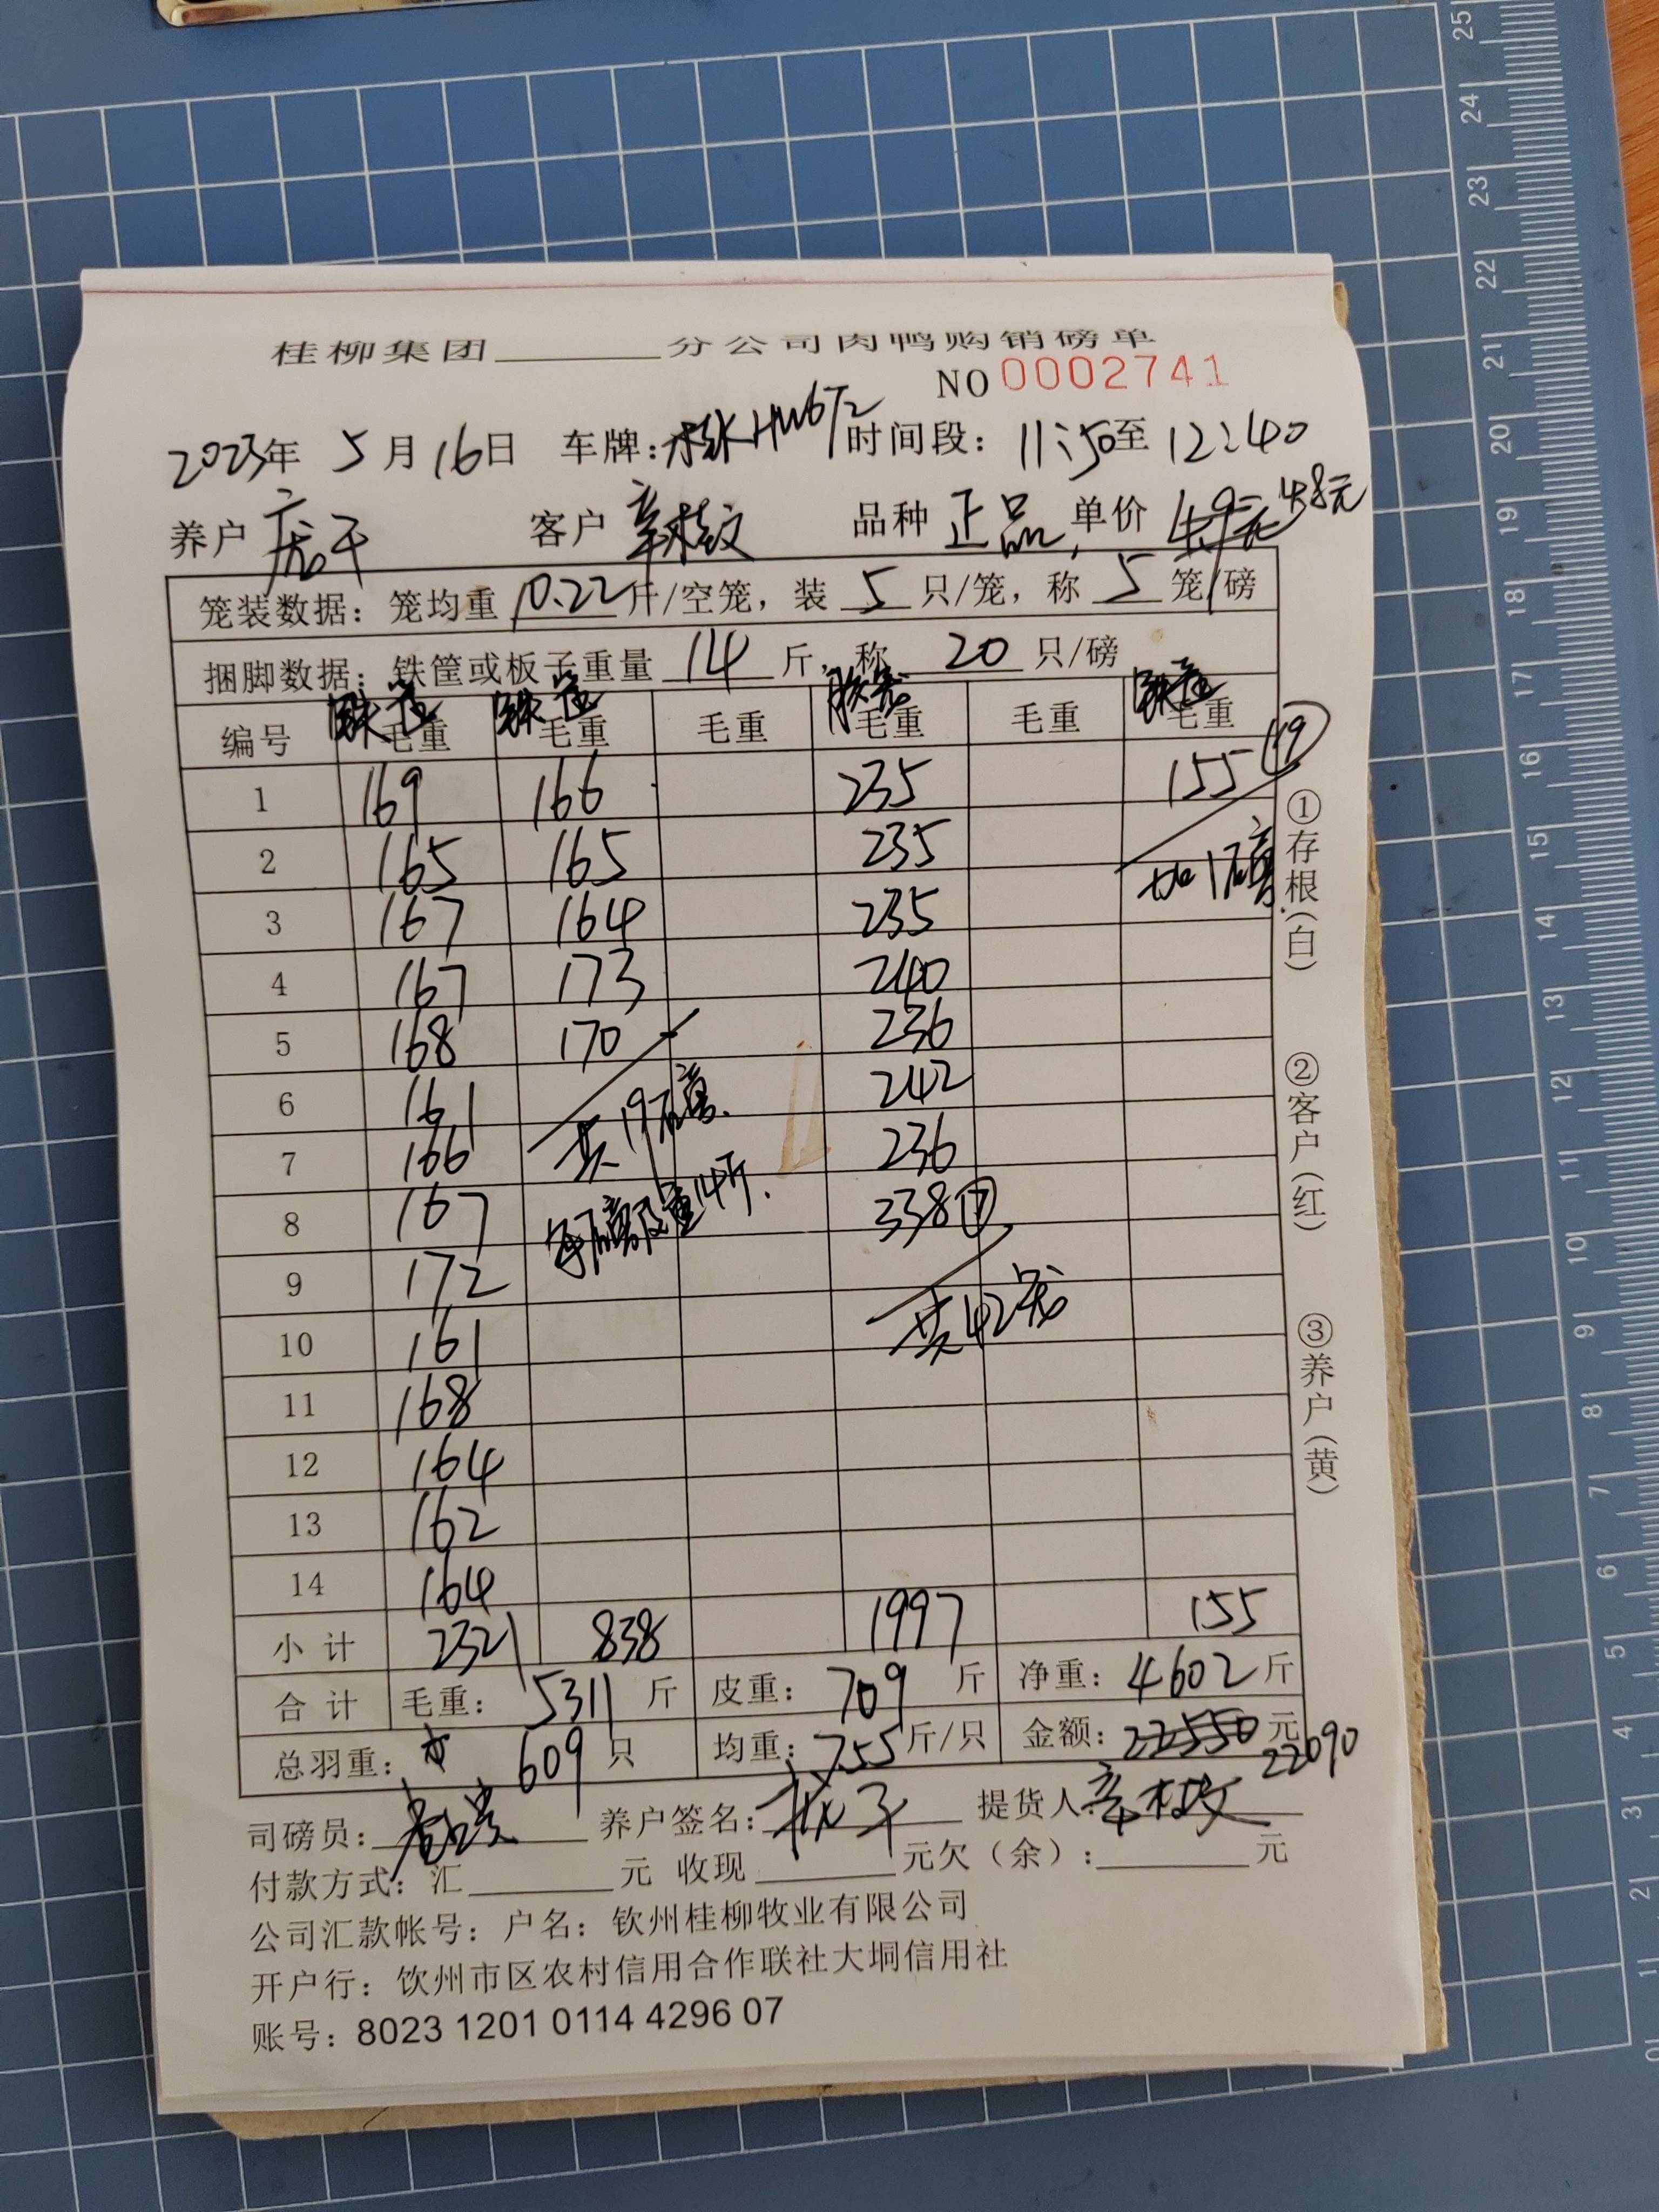 桂柳集团______分公司肉鸭购销磅单
NO 0002741
2023年 5月16日 车牌: 时间段: 11:50至 12:40
养户 客户 辛桂文 品种 正品 单价 4.9元 4.8元
笼装数据: 笼均重 10.22 斤/空笼, 装 5 只/笼, 称 5 笼/磅
捆脚数据: 铁筐或板子重量 14 斤, 称 20 只/磅
铁筐 铁筐 胶笼 铁筐
编号 毛重 毛重 毛重 毛重 毛重 毛重
1 169 166 235 155 19
2 165 165 235 加1磅
3 167 164 235
4 167 173 240
5 168 170 236
6 161 242
7 166 共19磅 236
8 167 每磅皮重14斤 338 7
9 172
10 161 共42笼
11 168
12 164
13 162
14 164
小计 2321 838 1997 155
合计 毛重: 5311 斤 皮重: 709 斤 净重: 4602 斤
总羽重: 609 只 均重: 7.55 斤/只 金额: 22550 元
22090
司磅员: 养户签名: 提货人: 辛桂文
付款方式: 汇______元 收现______元欠(余):______元
公司汇款帐号: 户名: 钦州桂柳牧业有限公司
开户行: 钦州市区农村信用合作联社大垌信用社
账号: 8023 1201 0114 4296 07
①存根(白)
②客户(红)
③养户(黄)
25
24
23
22
21
20
19
18
17
16
15
14
13
12
11
10
9
8
7
6
5
4
3
2
1
0